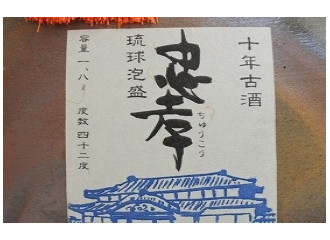 十年古酒
忠孝
ちゅうこう
琉球泡盛
容量一、八ℓ 度数四十二度